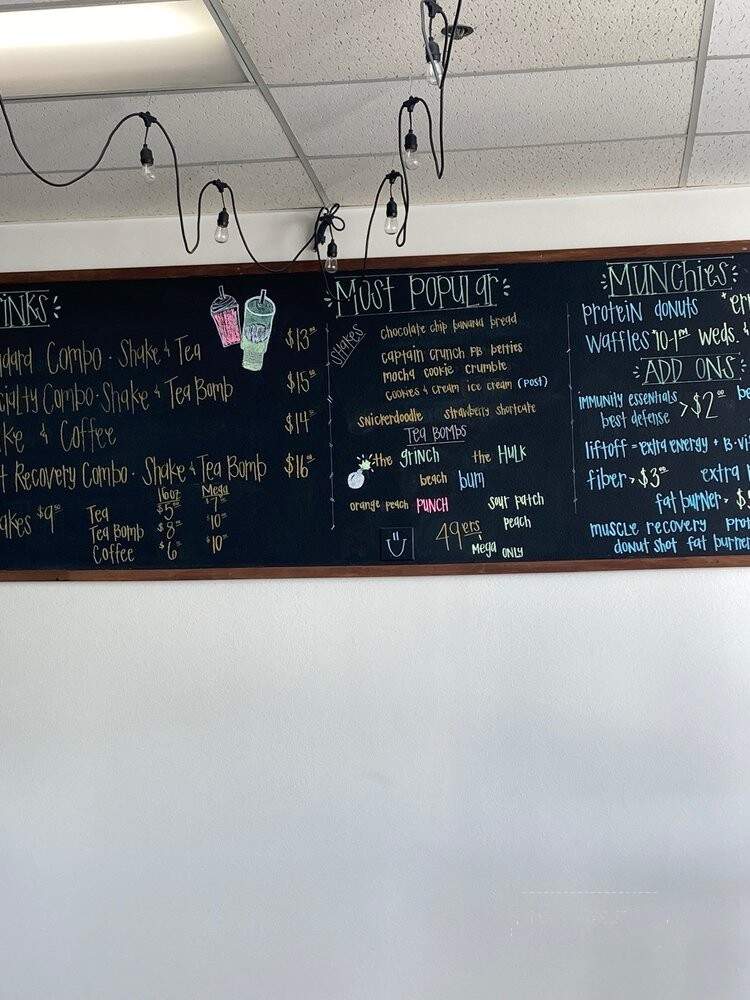 INKS
dard Combo · Shake & Tea $13
cialty Combo · Shake & Tea Bomb $15
ke & Coffee $14
t Recovery Combo · Shake & Tea Bomb $16
akes $9
16oz Mega
Tea $5 $7
Tea Bomb $8 $10
Coffee $6 $10
Most Popular
Shakes
chocolate chip banana bread
captain crunch PB berries
mocha cookie crumble
cookies & cream ice cream (post)
snickerdoodle strawberry shortcake
Tea Bombs
the grinch the Hulk
beach bum
orange peach PUNCH sour patch
peach
49ers
Mega only
Munchies
protein donuts
waffles 10-1 Weds.
ADD ONS
immunity essentials
best defense > $2
liftoff = extra energy + B-vi
fiber > $3 extra
fat burner > $
muscle recovery prot
donut shot fat burner